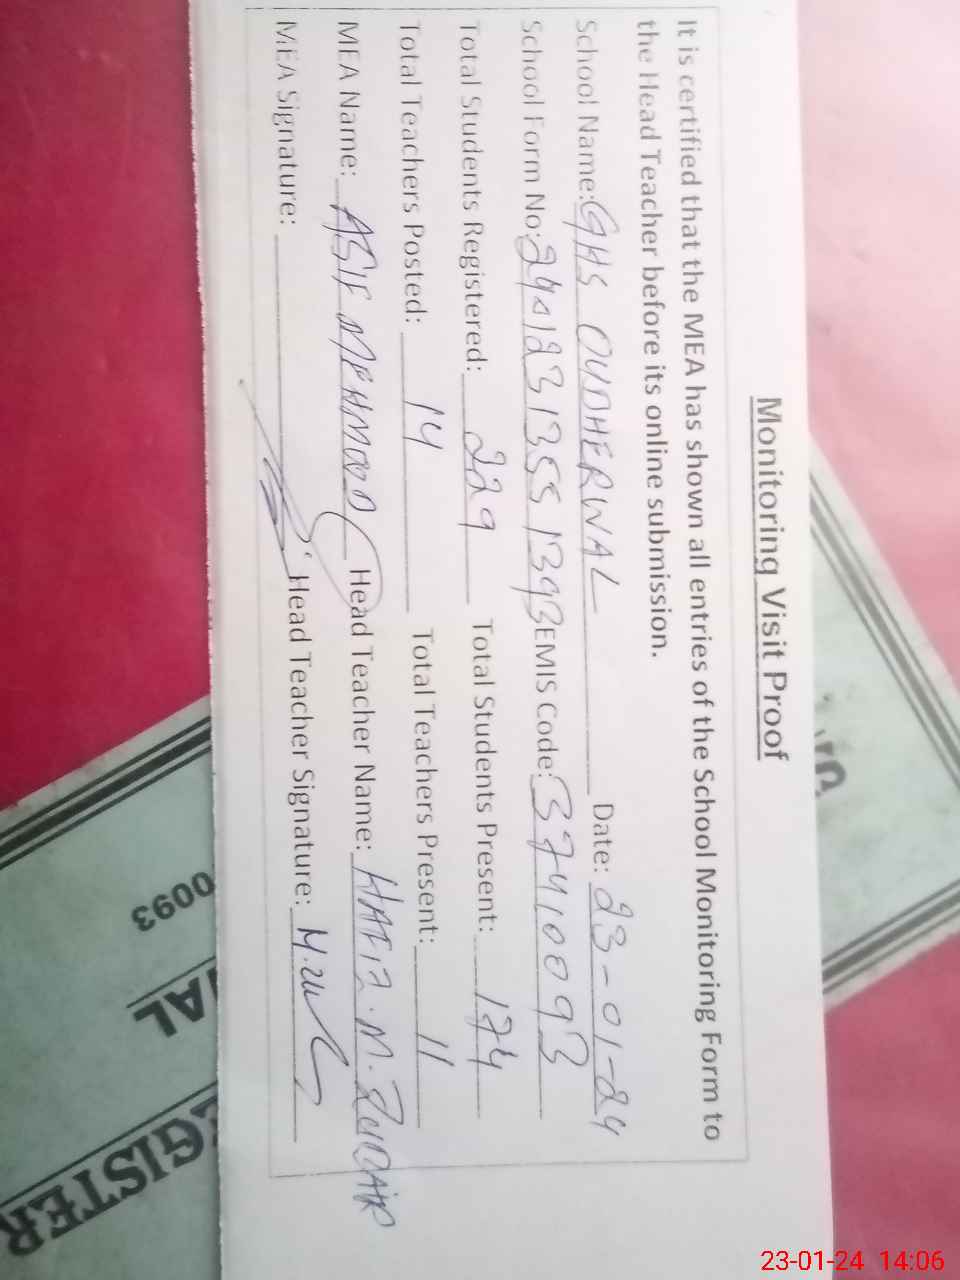 Monitoring Visit Proof
It is certified that the MEA has shown all entries of the School Monitoring Form to
the Head Teacher before its online submission.
School Name: GHS OUDHERWAL Date: 23-01-24
School Form No: 24012313551393 EMIS Code: 37410093
Total Students Registered: 229 Total Students Present: 174
Total Teachers Posted: 14 Total Teachers Present: 11
MEA Name: ASIF MEHMOOD Head Teacher Name: HAFIZ.M.ZUBAIR
MEA Signature: Head Teacher Signature:
0093
AL
GISTER
23-01-24 14:06